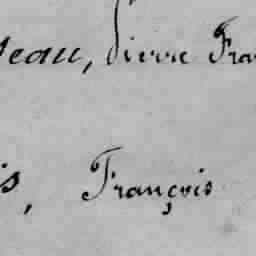 eau, Pierre Fra
s, François